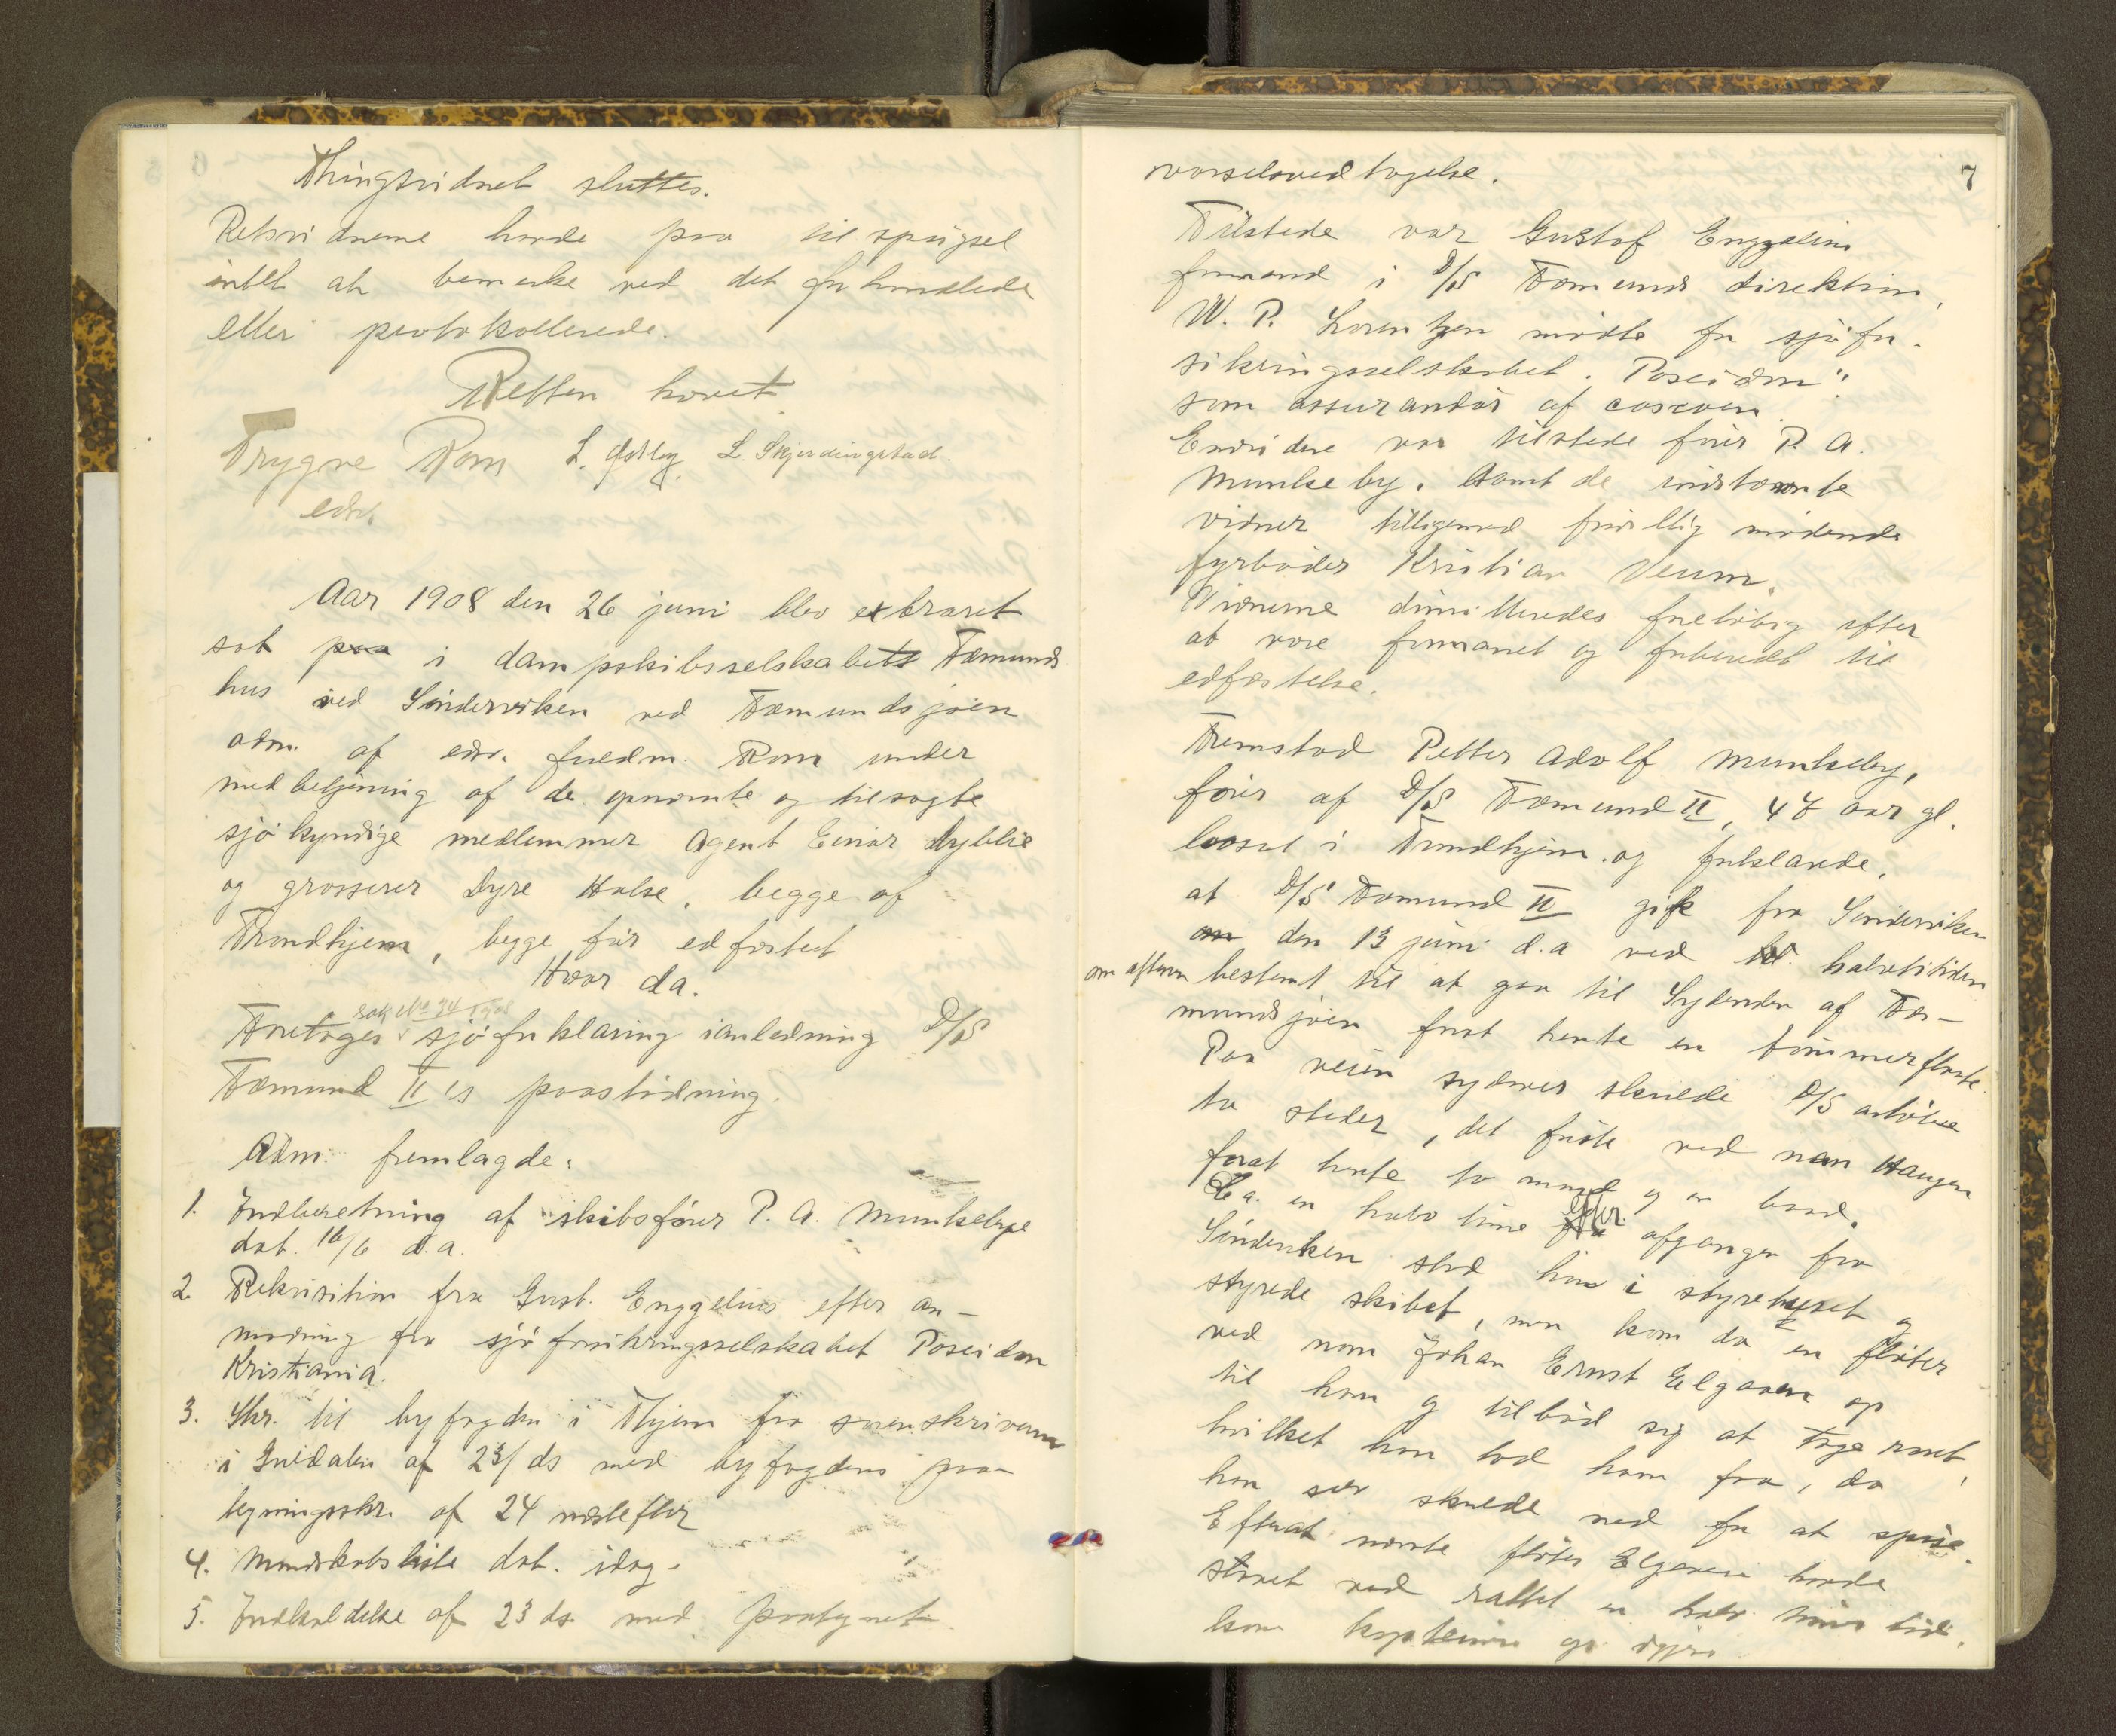 Thingsvidnet sluttes.
Retsvidnerne havde paa tilspørgsel
intet at bemerke ved det forhandlede
eller protokollerede.
Retten hævet
Trygve Rom L. Østby L. Skjerdingstad.
edsv.
Aar 1908 den 26 juni blev extraret
sat paa i dampskibsselskabets Fæmunds
hus ved Sønderviken ved Fæmundsjøen
adm. af edsv. fuldm. Rom under
medbetjening af de opnævnte og tilsagte
sjøkyndige medlemmer agent Einar Dyblie
og grosserer Dyre Halse, begge af
Trondhjem, begge før edfæstet
Hvor da.
Sak No 34 1908
Foretoges sjøforklaring ianledning D/S
Fæmund II's paastødning.
Adm. fremlagde:
1. Indberetning af skibsfører P. A. Munkeby
dat. 16/6 d.a.
2. Rekvisition fra Gust. Enggelius efter an-
modning fra sjøforsikringsselskabet Poseidon
Kristiania.
3. Skr. til byfogden i Thjem fra sorenskriveren
i Guldalen af 23/ ds med byfogdens paa-
tegningsskr. af 24 næstefter
4. Mandskabsliste dat. idag.
5. Indkaldelse af 23 ds. med paategnet
varselsvedtagelse.
7
Tilstede var Gustaf Enggelius
formand i D/S Fæmunds direktion,
W. P. Lorentzen mødte for sjøfor-
sikringsselskabet "Poseidon"
som assurandør af cascoen.
Endvidere var tilstede fører P. A.
Munkeby. samt de indstævnte
vidner tilligemed frivillig mødende
fyrbøder Kristian Veum.
Vidnerne dimitteredes foreløbig efter
at være formanet og forberedt til
edfæstelse.
Fremstod Petter Adolf Munkeby,
fører af D/S Fæmund II, 47 aar gl.
bosat i Trondhjem og forklarede,
at D/S Fæmund II gik fra Sønderviken
den 13 juni d.a ved halvetitiden
om aftenen bestemt til at gaa til Sydenden af Fæ-
mundsjøen forat hente en tømmerflaate.
Paa veien sydover skulde D/S anløbe
to steder, det første ved navn Haugen
forat hente to mand og en baad.
Ca. en halv time efter afgangen fra
Sønderviken stod han i styrehuset og
styrede skibet, men kom da en fløter
ved navn Johan Ernst Elgaaen op
til ham og tilbød sig at tage roret,
hvilket han lod ham faa, da
han selv skulde ned for at spise.
Efterat nævnte fløter Elgaaen havde
staaet ved rattet en halv times tid,
kom kapteinen op